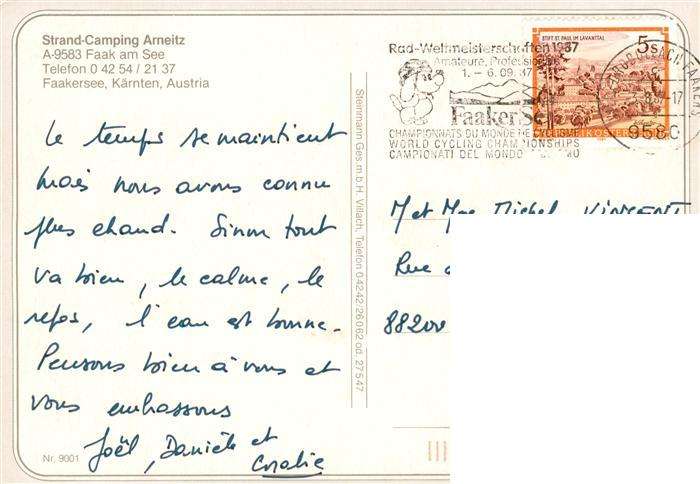 Strand-Camping Arneitz
A-9583 Faak am See
Telefon 0 42 54 / 21 37
Faakersee, Kärnten, Austria
le temps se maintient
mais nous avons connu
plus chaud. Sinon tout
va bien, le calme, le
repos, l'eau est bonne.
Pensons bien à vous et
vous embrassons
Joël, Danièle et
Coralie
Nr. 9001
Steinmann Ges.m.b.H. Villach, Telefon 04242/26062 od. 27547
Rad-Weltmeisterschaften 1987
Amateure, Professionals
1. - 6. 09. 87
Faaker See
CHAMPIONNATS DU MONDE DE CYCLISME
WORLD CYCLING CHAMPIONSHIPS
CAMPIONATI DEL MONDO
STIFT ST. PAUL IM LAVANTTAL
5 S
9580
M et Mme Michel VINCENT
Rue
88200